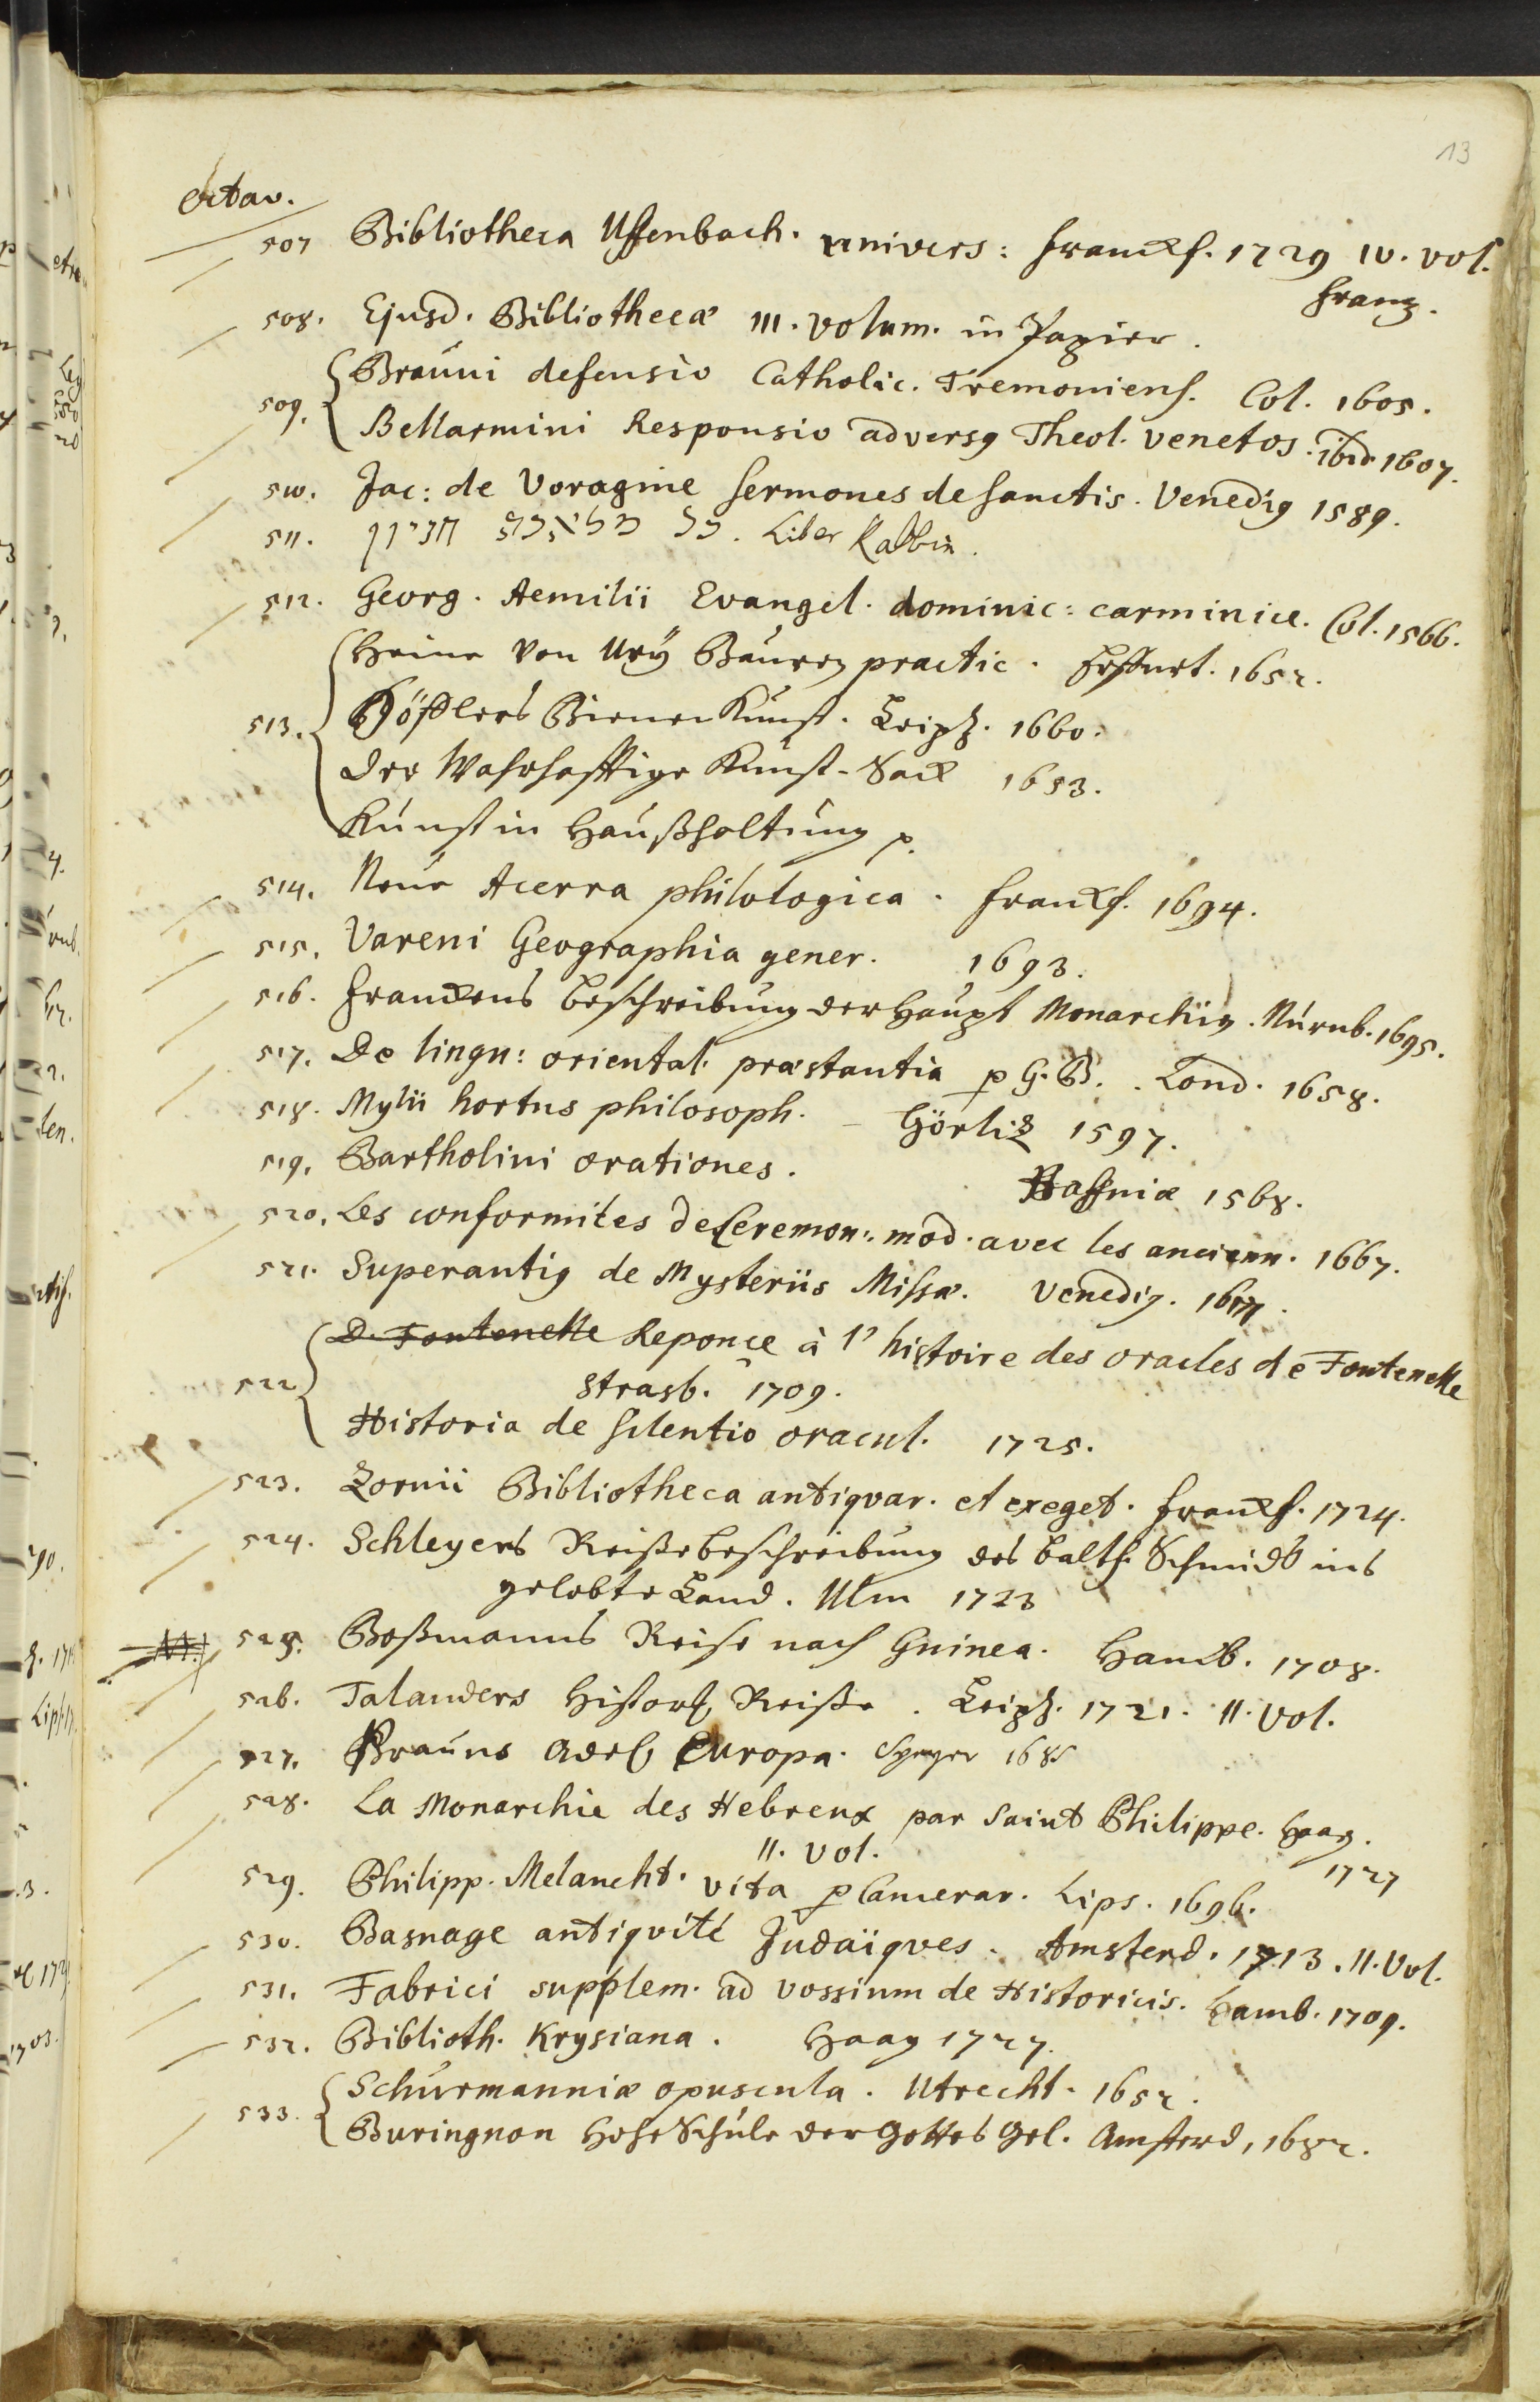 13
Octav.
507 Bibliotheca Uffenbach. univers: Franckf. 1729 IV. vol.
Franz.
508. Ejusd. Bibliothecæ III. Volum. in Papier.
Brauni defensio Catholic. Tremoniens. Col. 1605.
509. Bellarmini Responsio adversg Theol. Venetos. ibid 1607.
510. Jac: de Voragine Sermones de Sanctis. Venedig 1589.
511. Liber Rabbin.
512. Georg. Aemilii Evangel. dominic: carminice. Col. 1566.
Heine von Ury Bauren practic. Erffurt. 1652.
513. Höflers Bienen Kunst. Leipz. 1660.
Der Wahrhafftige Kunst-Sack 1653.
Kunst in Haußhaltung p.
514. Neue Acerra philologica. Franckf. 1694.
515. Vareni Geographia gener. 1693.
516. Franckens Beschreibung der Haupt Monarchiig. Nürnb. 1695.
517. De lingu: oriental. præstantia p G. B. Lond. 1658.
518. Mylii hortus philosoph. – Görliz 1597.
519. Bartholini orationes. Haffniæ 1568.
520. Les conformites de Ceremon: mod. avec les ancienn. 1667.
521. Superantig de Mysteriis Missæ. Venedig.
D. Fontenelle Reponce à l'histoire des oracles de Fontenelle
522 Strasb. 1709.
Historia de silentio oracul. 1725.
523. Zornii Bibliotheca antiqvar. et exeget. Franckf. 1724.
524. Schleyers Reißebeschreibung des Balth. Schmidts ins
gelobte Land. Ulm 1723
525. Boßmanns Reise nach Guinea. Hamb. 1708.
526. Talanders Histor. Reiße. Leipz. 1721. II. Vol.
527. Brauns Adel. Europa. Speyer 1685
528. La Monarchie des Hebreux par Saint Philippe. Haag.
II. Vol. 1727
529. Philipp. Melancht. vita p Camerar. Lips. 1696.
530. Basnage antiqvité Judaiqves. Amsterd. 1713. II. Vol.
531. Fabrici supplem. ad Vossium de Historicis. Hamb. 1709.
532. Biblioth. Krysiana. Haag 1727.
Schurmanniæ opuscula. Utrecht. 1652.
533. Buringnon Hohe Schule der Gottes Gel. Amsterd, 1682.